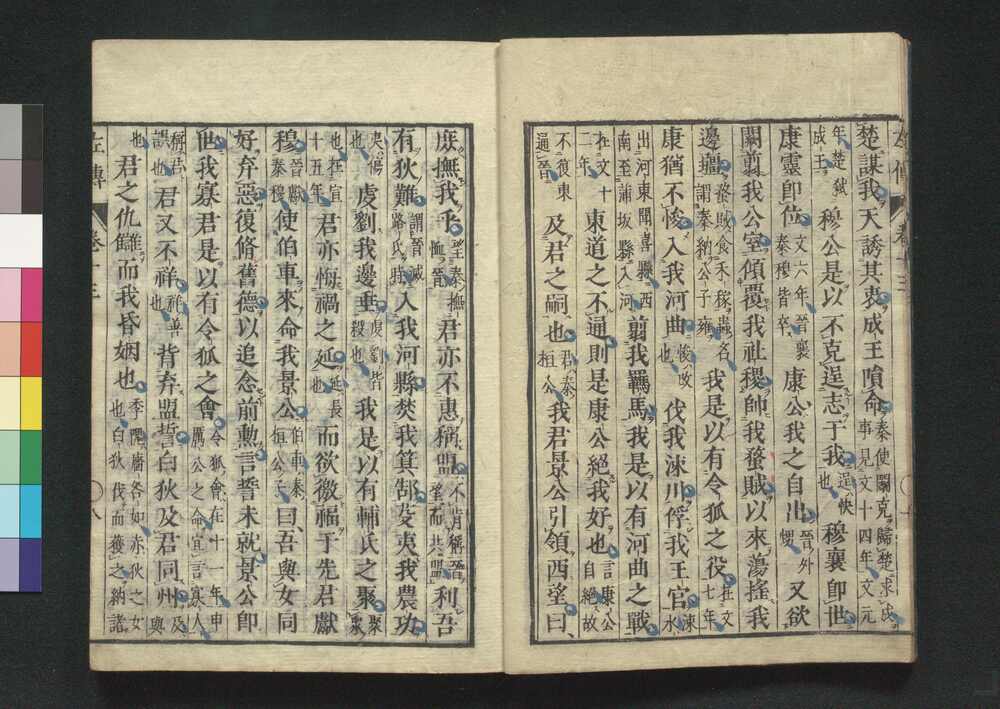 楚謀我天誘其衷成王隕命秦使鬬克歸楚求成事見文十四年文元
年楚弑成王穆公是以不克逞志于我逞快也穆襄即世
康靈即位文六年晉襄秦穆皆卒康公我之自出晉外甥又欲
闕翦我公室傾覆我社稷帥我蝥賊以來蕩搖我
邊疆蝥賊食禾稼蟲名謂秦納公子雍我是以有令狐之役在文七年
康猶不悛入我河曲悛改也伐我涑川俘我王官涑水
出河東聞喜縣西南至蒲坂縣入河翦我羈馬我是以有河曲之戰
在文十二年東道之不通則是康公絕我好也言康公自絕故
不復東通晉及君之嗣也君秦桓公我君景公引領西望曰
庶撫我乎望秦撫恤晉君亦不惠稱盟不肯稱晉望而共盟利吾
有狄難謂晉滅路氏時入我河縣焚我箕郜芟夷我農功
夷傷也虔劉我邊垂虔劉皆殺也我是以有輔氏之聚聚衆
也在宣十五年君亦悔禍之延延長也而欲徼福于先君獻
穆晉獻秦穆使伯車來命我景公伯車秦桓公子曰吾與女同
好弃惡復脩舊德以追念前勳言誓未就景公即
世我寡君是以有令狐之會令狐會在十一年申厲公之命宜言寡人
稱君誤也君又不祥祥善也背弃盟誓白狄及君同州及與
也君之仇讎而我昏姻也季隗廧咎如赤狄之女也白狄伐而獲之納諸
左傳 卷十三 八